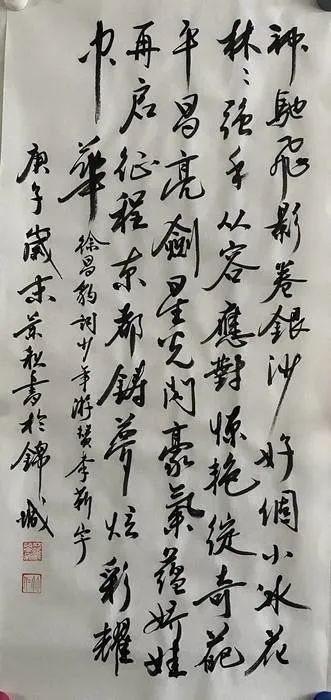 神馳飛影卷銀沙好個小冰花
林〻強手从容應對惊艳绽奇葩
平昌亮劍星光闪豪氣蕴娇娃
再启征程京都鑄夢炫彩耀
中華
徐昌豹詞少年游赞李靳宇
庚子歲末景秋書於錦城